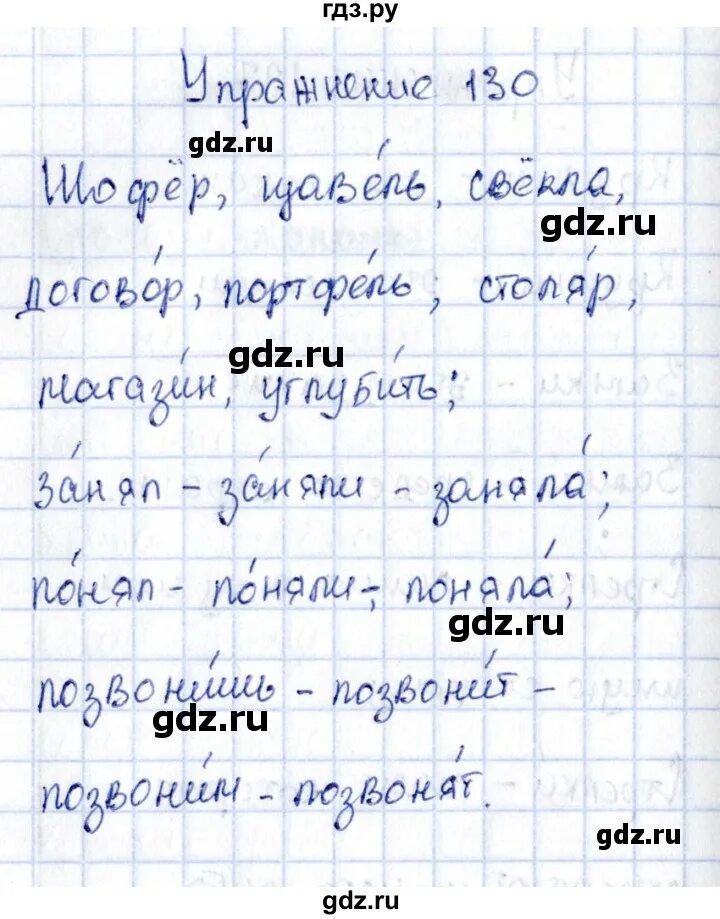 гдз.ру
Упражнение 130
gdz.ru
Шофёр, щаве́ль, свёкла,
gdz.ru
догово́р, портфе́ль, столя́р,
gdz.ru
магази́н, углуби́ть;
за́нял - за́няли - заняла́;
по́нял - по́няли -, поняла́;
gdz.ru
позвони́шь - позвони́т -
gdz.ru
позвони́м - позвоня́т.
gdz.ru
gdz.ru